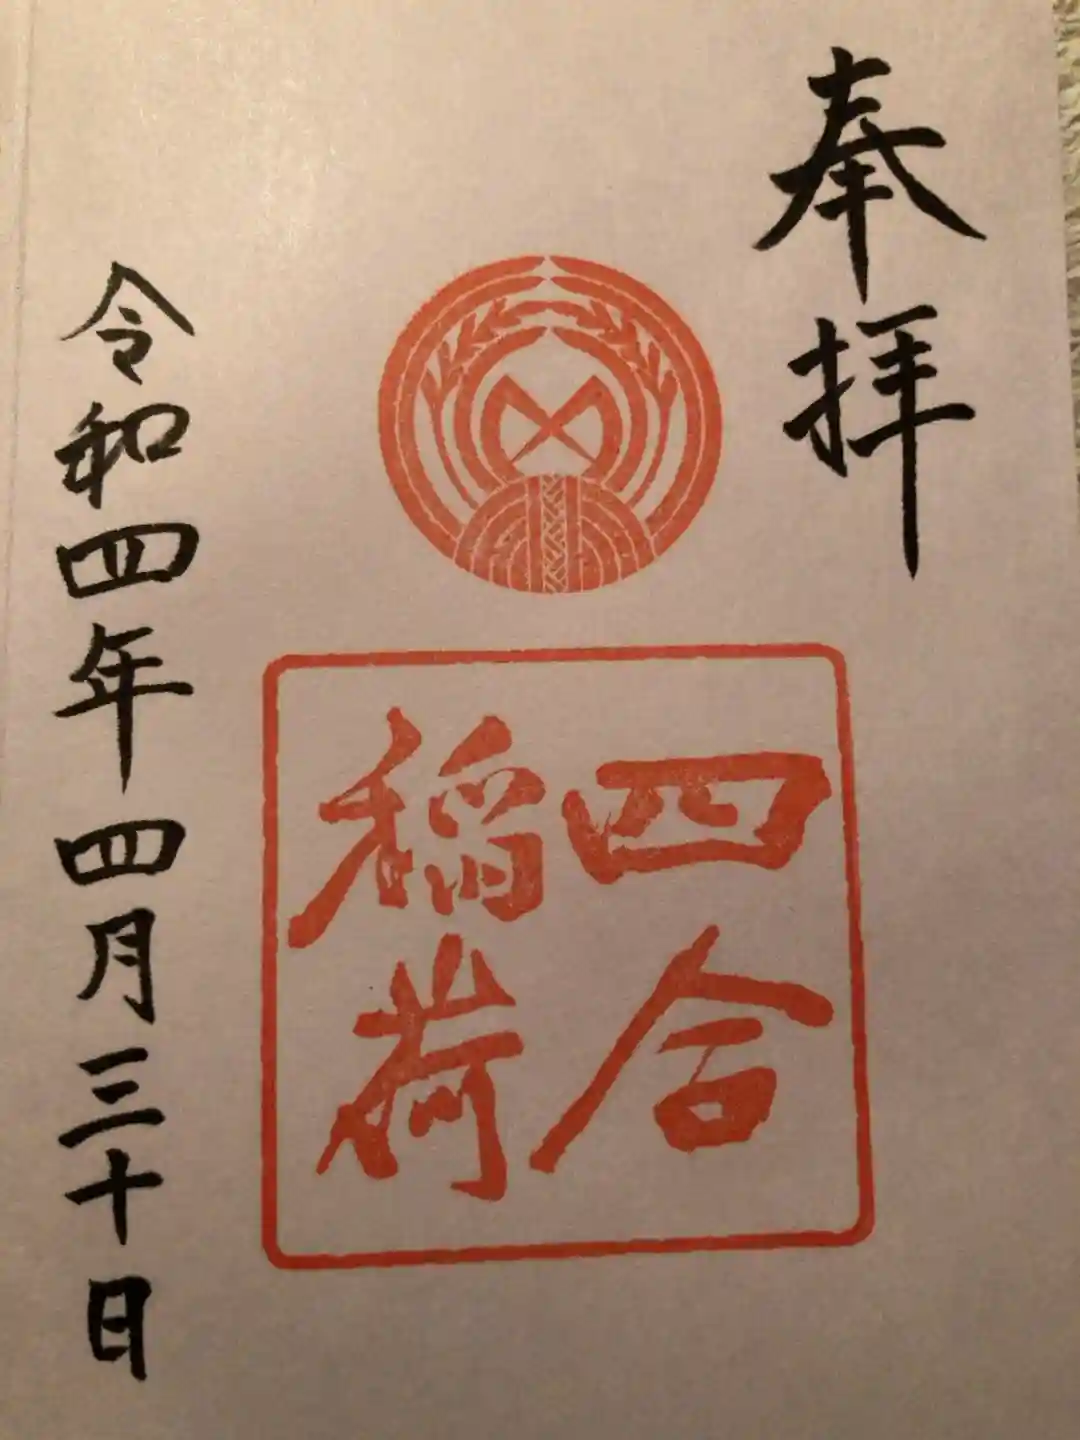 奉拝
四合
稲荷
令和四年四月三十日